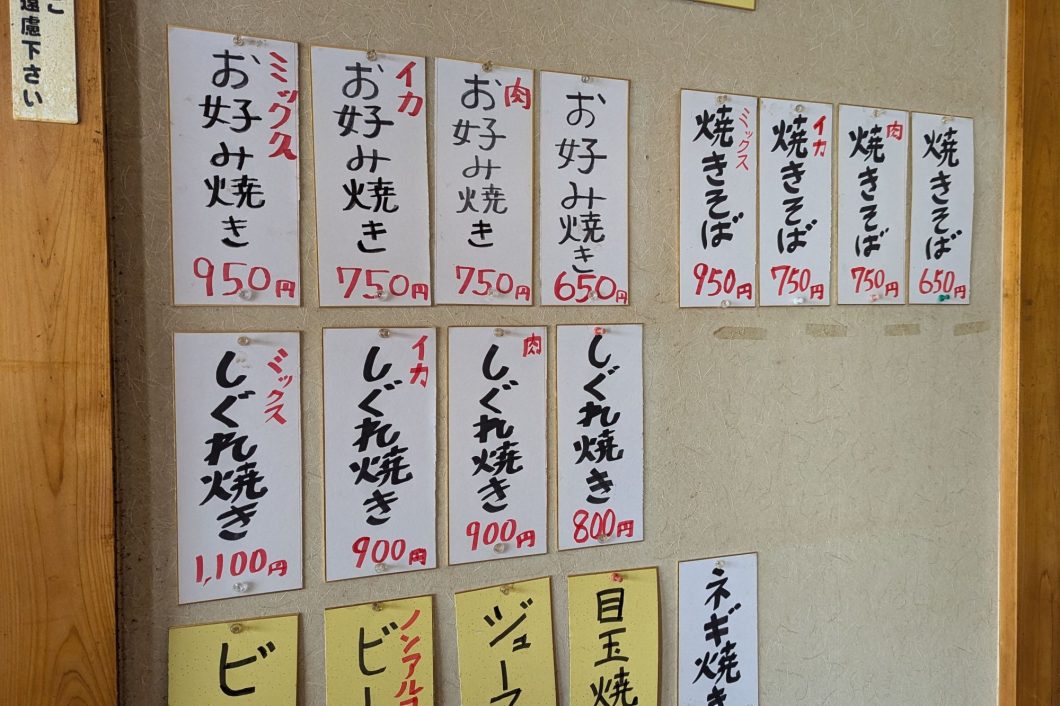 ご遠慮下さい
焼きそば
650円
肉
焼きそば
750円
イカ
焼きそば
750円
ミックス
焼きそば
950円
お好み焼き
650円
肉
お好み焼き
750円
イカ
お好み焼き
750円
ミックス
お好み焼き
950円
しぐれ焼き
800円
肉
しぐれ焼き
900円
イカ
しぐれ焼き
900円
ミックス
しぐれ焼き
1,100円
ネギ焼き
目玉焼
ジュース
ノンアルコ
ビー
ビ